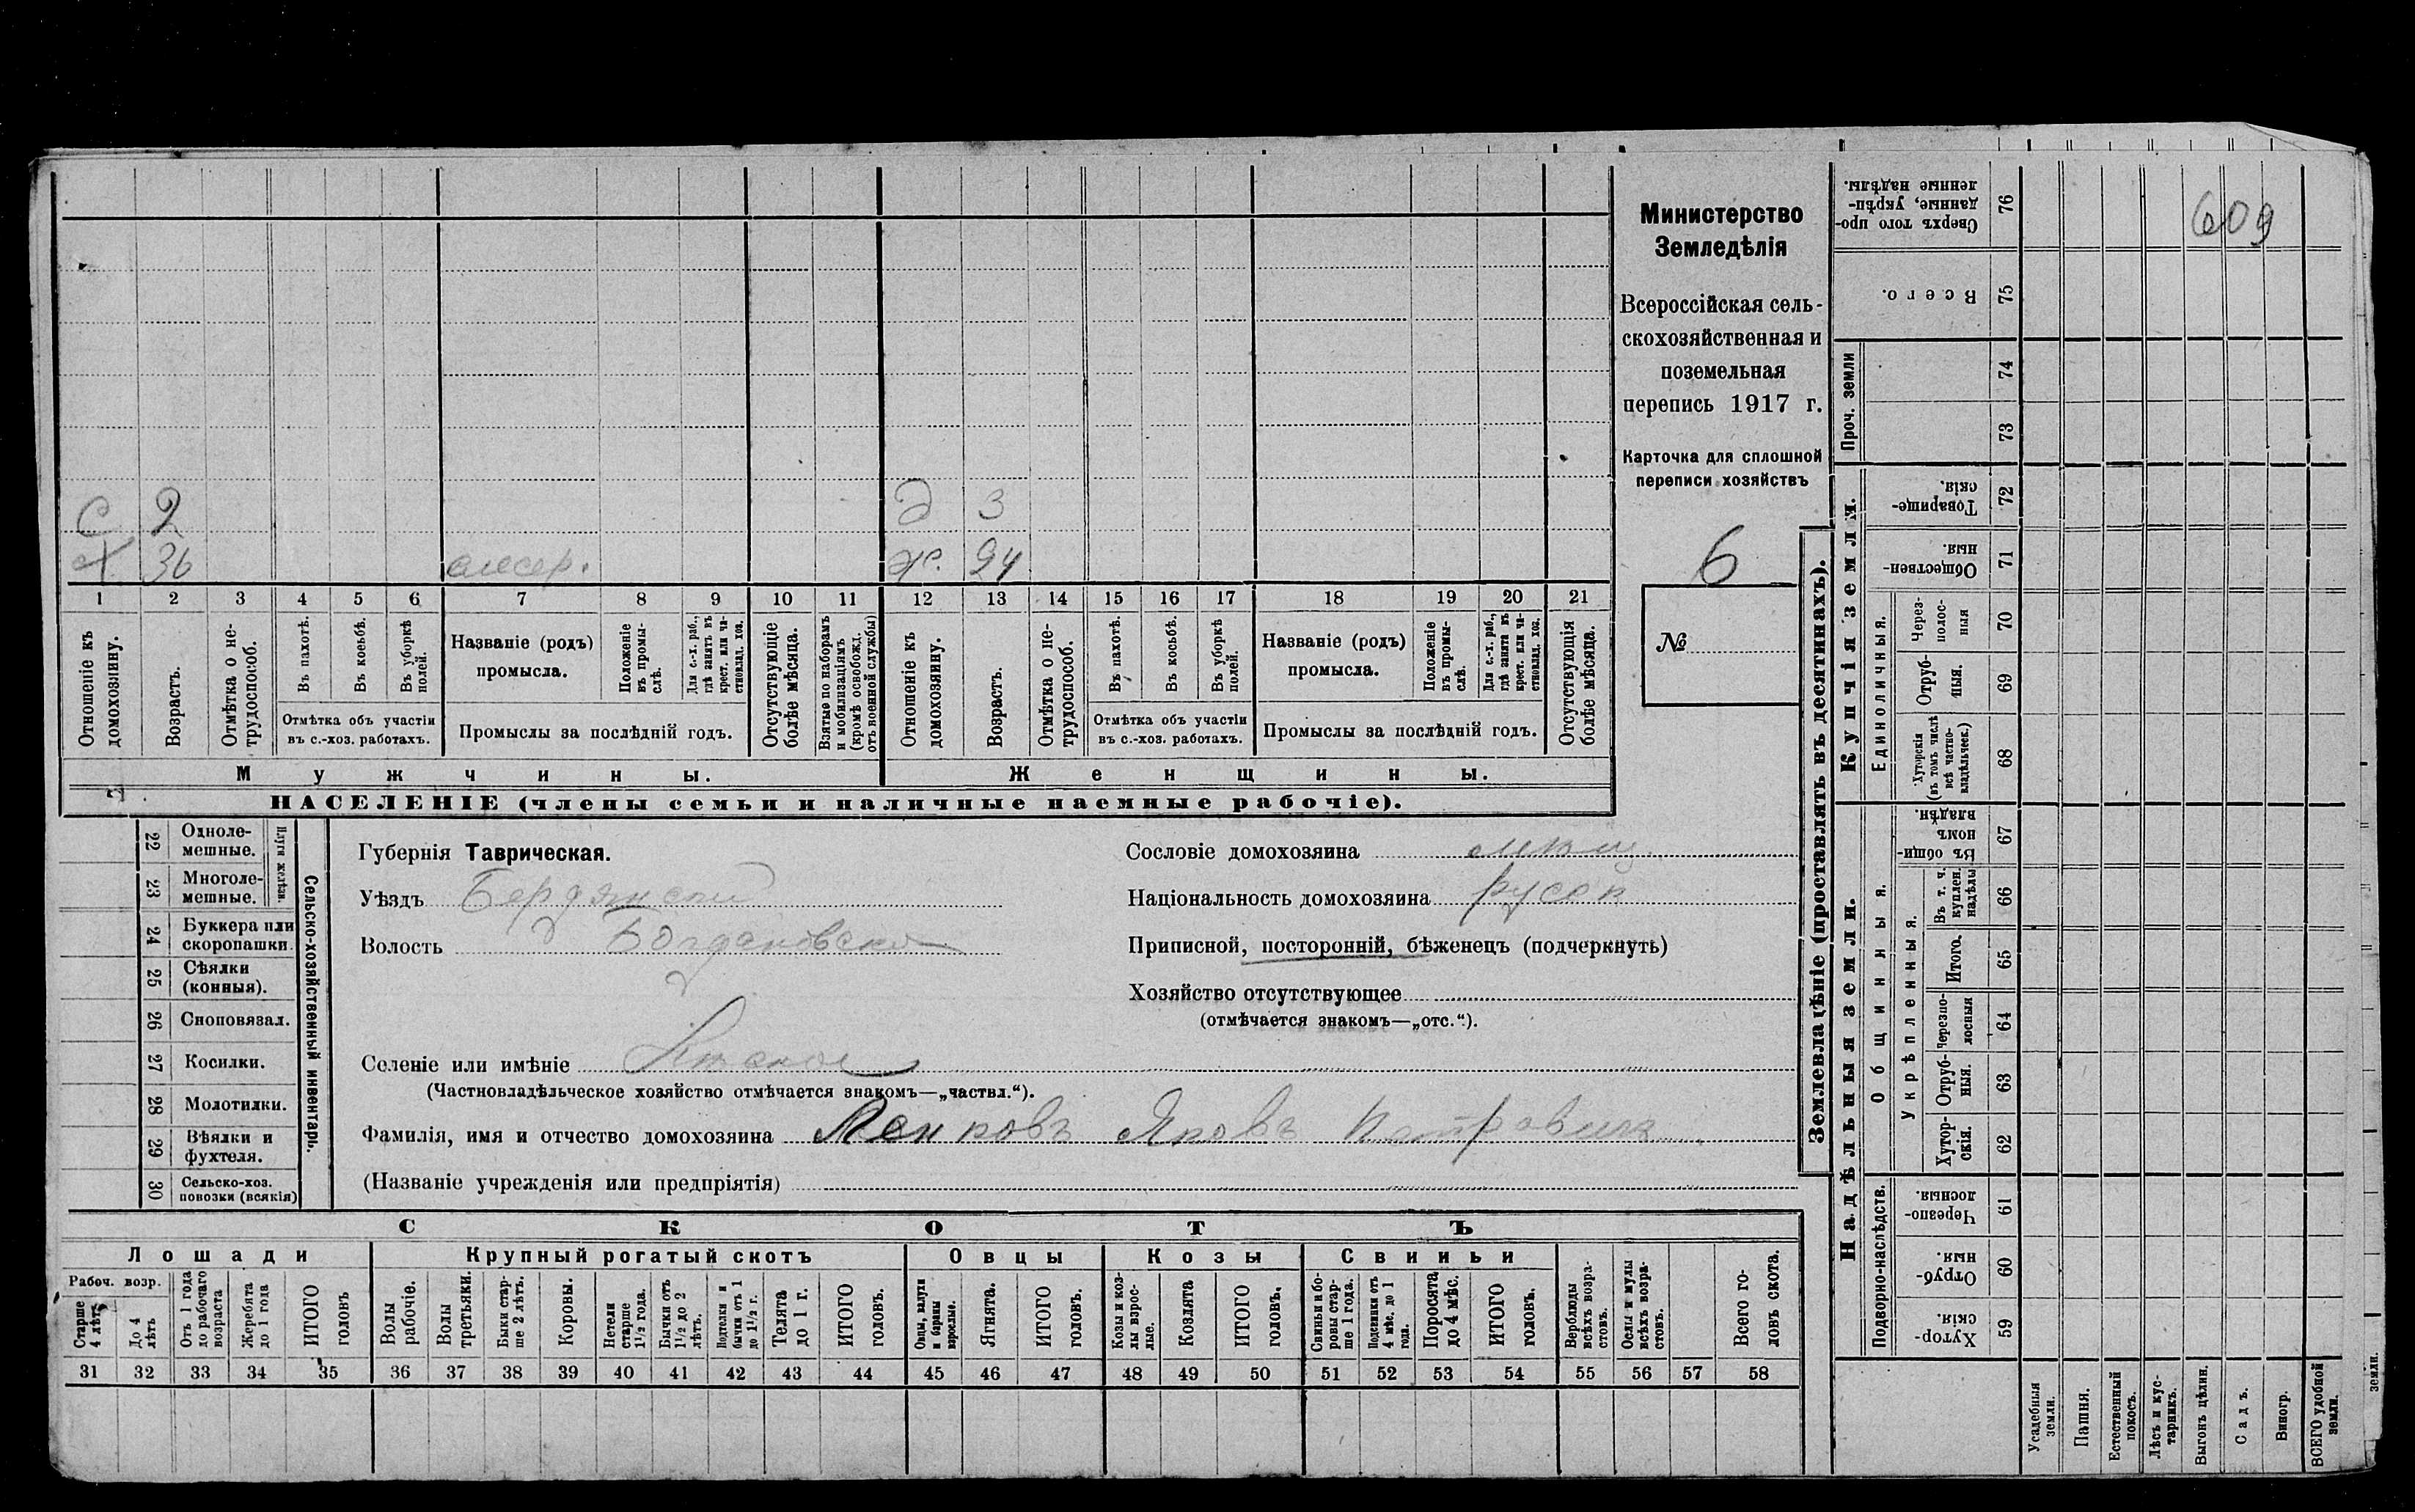 609
Министерство
Земледѣлія
Всероссійская сель-
скохозяйственная и
поземельная
перепись 1917 г.
Карточка для сплошной
переписи хозяйствъ
6
№
С 2 Д 3
Х 36 Ж. 24
1 2 3 4 5 6 7 8 9 10 11 12 13 14 15 16 17 18 19 20 21
Отношеніе къ домохозяину.
Возрастъ.
Отмѣтка о не-
трудоспособ.
Въ пахотѣ.
Въ косьбѣ.
Въ уборкѣ
полей.
Отмѣтка объ участіи
въ с.-хоз. работахъ.
Названіе (родъ)
промысла.
Положеніе
въ промы-
слѣ.
Для с.-х. раб.,
гдѣ занятъ въ
крест. или ча-
стновлад. хоз.
Промыслы за послѣдній годъ.
Отсутствующіе
болѣе мѣсяца.
Взятые по наборамъ
и мобилизаціямъ
(кромѣ освобожд.
отъ военной службы)
Отношеніе къ
домохозяину.
Возрастъ.
Отмѣтка о не-
трудоспособ.
Въ пахотѣ.
Въ косьбѣ.
Въ уборкѣ
полей.
Отмѣтка объ участіи
въ с.-хоз. работахъ.
Названіе (родъ)
промысла.
Положеніе
въ промы-
слѣ.
Для с.-х. раб.,
гдѣ занята въ
крест. или ча-
стновлад. хоз.
Промыслы за послѣдній годъ.
Отсутствующія
болѣе мѣсяца.
Мужчины. Женщины.
НАСЕЛЕНІЕ (члены семьи и наличные наемные рабочіе).
Сельско-хозяйственный инвентарь.
Плуги желѣзн.
22 Одноле-
мешные.
23 Многоле-
мешные.
24 Буккера или
скоропашки.
25 Сѣялки
(конныя).
26 Сноповязал.
27 Косилки.
28 Молотилки.
29 Вѣялки и
фухтеля.
30 Сельско-хоз.
повозки (всякія)
Губернія Таврическая.
Уѣздъ Бердянскій
Волость
Селеніе или имѣніе
(Частновладѣльческое хозяйство отмѣчается знакомъ—„частвл.“).
Фамилія, имя и отчество домохозяина Яковъ Петровичъ
(Названіе учрежденія или предпріятія)
Сословіе домохозяина мѣщ.
Національность домохозяина русск
Приписной, посторонній, бѣженецъ (подчеркнуть)
Хозяйство отсутствующее
(отмѣчается знакомъ—„отс.“).
СКОТЪ
Лошади Крупный рогатый скотъ Овцы Козы Свиньи
Рабоч. возр.
Старше
4 лѣтъ
До 4
лѣтъ
Отъ 1 года
до рабочаго
возраста
Жеребята
до 1 года
ИТОГО
головъ
Волы
рабочіе.
Волы
третьяки.
Быки стар-
ше 2 лѣтъ.
Коровы.
Нетели
старше
1½ года.
Бычки отъ
1½ до 2
лѣтъ.
Подтелки и
бычки отъ 1
до 1½ г.
Телята
до 1 г.
ИТОГО
головъ.
Овцы, валухи
и бараны
взрослые.
Ягнята.
ИТОГО
головъ.
Козы и коз-
лы взрос-
лые.
Козлята
ИТОГО
головъ.
Свиньи и бо-
ровы стар-
ше 1 года.
Подсвинки отъ
4 мѣс. до 1
года.
Поросята
до 4 мѣс.
ИТОГО
головъ.
Верблюды
всѣхъ возра-
стовъ.
Ослы и мулы
всѣхъ возра-
стовъ.
Всего го-
ловъ скота.
31 32 33 34 35 36 37 38 39 40 41 42 43 44 45 46 47 48 49 50 51 52 53 54 55 56 57 58
Землевладѣніе (проставлять въ десятинахъ).
Купчія земли.
Надѣльныя земли.
Проч. земли
Единоличныя.
Общинныя.
Укрѣпленныя.
Подворно-наслѣдств.
76 Сверхъ того про-
данные, укрѣп-
ленные надѣлы.
75 Всего.
74
73
72 Товарище-
скія.
71 Обществен-
ныя.
70 Через-
полос-
ныя
69 Отруб-
ныя.
68 Хуторскія
(въ томъ числѣ
всѣ частно-
владѣльческ.)
67 Въ общин-
номъ
владѣн.
66 Въ т. ч.
куплен.
надѣлы
65 Итого.
64 Черезпо-
лосныя
63 Отруб-
ныя.
62 Хутор-
скія.
61 Черезпо-
лосныя.
60 Отруб-
ныя.
59 Хутор-
скія.
Усадебныя
земли.
Пашня.
Естественный
покосъ.
Лѣсъ и кус-
тарникъ.
Выгонъ цѣлин.
Садъ.
Виногр.
ВСЕГО удобной
земли.
земли.